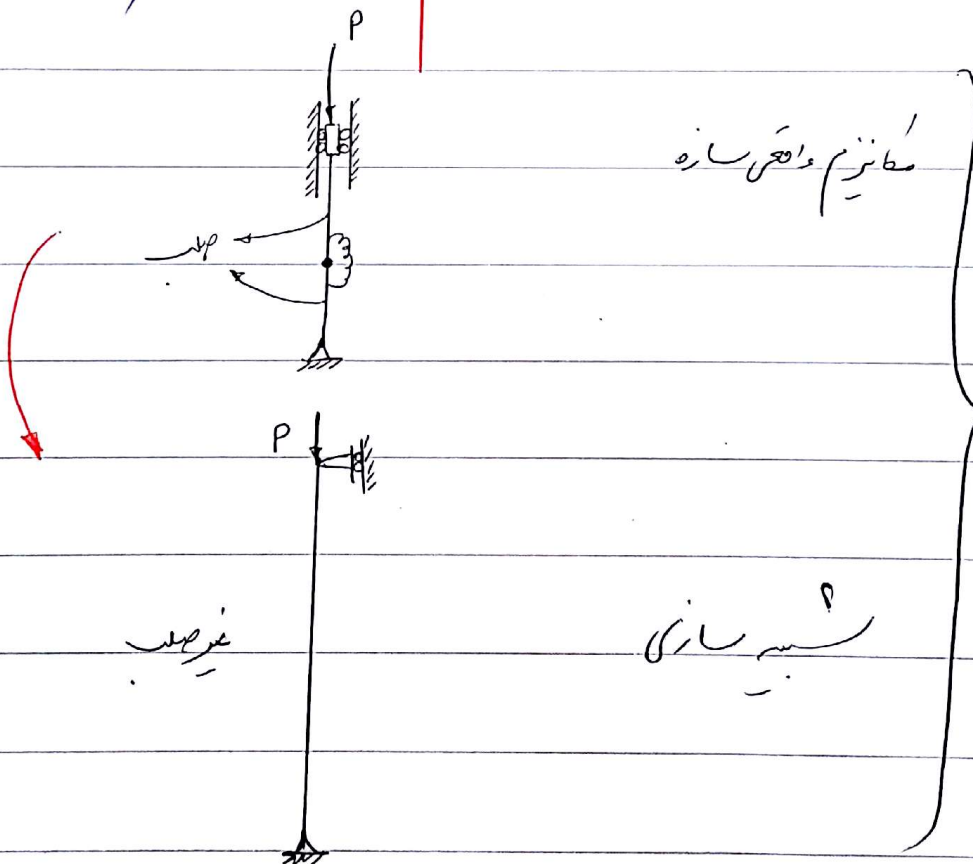 P
مکانیزم واقعی سازه
صلب
P
غیر صلب
شبیه سازی